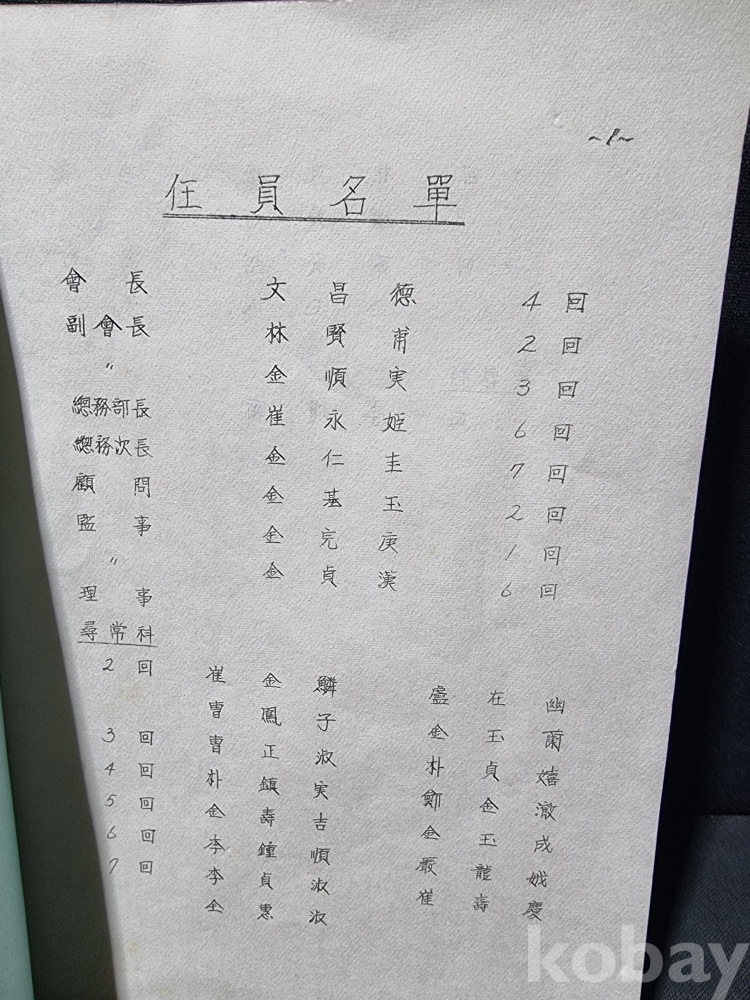 ~1~
任員名單
會長 文昌德 4回
副會長 林賢甫 2回
〃 金順実 3回
總務部長 崔永姫 6回
總務次長 金仁圭 7回
顧問 金基玉 2回
監事 金完庚 1回
〃 金貞漢 6回
理事
尋常科
2回 崔金鱗 盧在幽
曹鳳子 金玉爾
3回 曹正淑 朴貞嬉
4回 朴鎮実 鄭金澈
5回 金壽吉 金玉成
6回 李鍾順 嚴龍娥
7回 李貞淑 崔壽慶
金惠淑
kobay